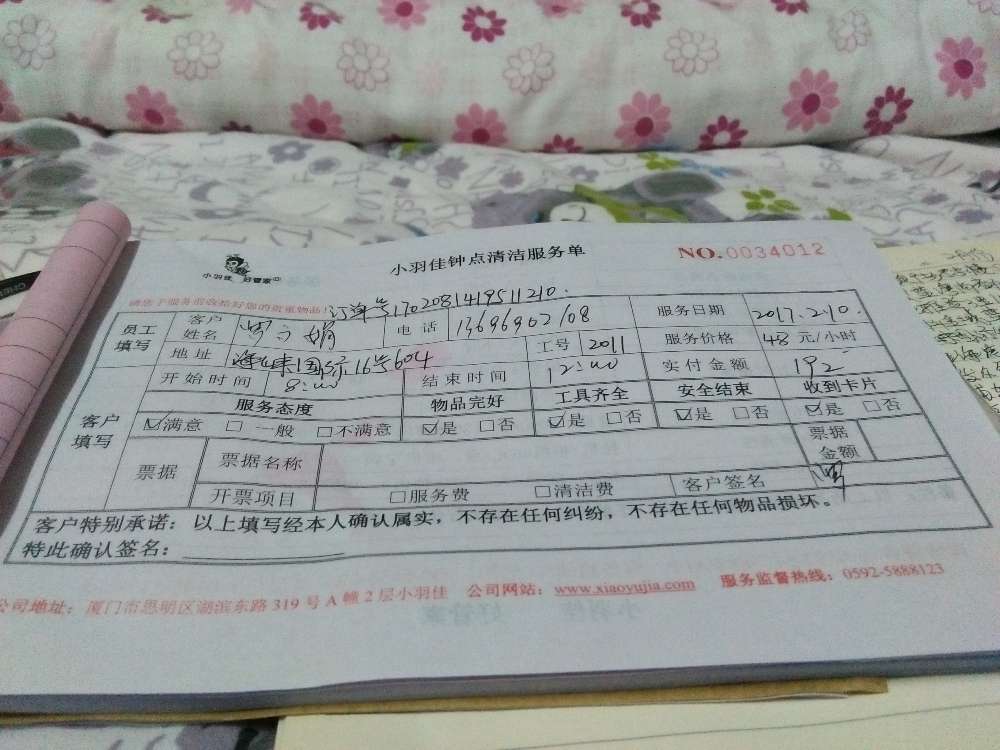 小羽佳 好管家
小羽佳钟点清洁服务单
NO.0034012
请您于服务前收拾好您的贵重物品! 订单号1702081419511210.
员工填写 客户姓名 电话 13696902108 服务日期 2017.2.10.
地址 国际16号604 工号 2011 服务价格 48元/小时
客户填写 开始时间 8:00 结束时间 12:00 实付金额 192
服务态度 物品完好 工具齐全 安全结束 收到卡片
☑满意 □一般 □不满意 ☑是 □否 ☑是 □否 ☑是 □否 ☑是 □否
票据 票据名称 票据金额
开票项目 □服务费 □清洁费 客户签名
客户特别承诺:以上填写经本人确认属实,不存在任何纠纷,不存在任何物品损坏。
特此确认签名:
公司地址:厦门市思明区湖滨东路319号A幢2层小羽佳 公司网站:www.xiaoyujia.com 服务监督热线:0592-5888123